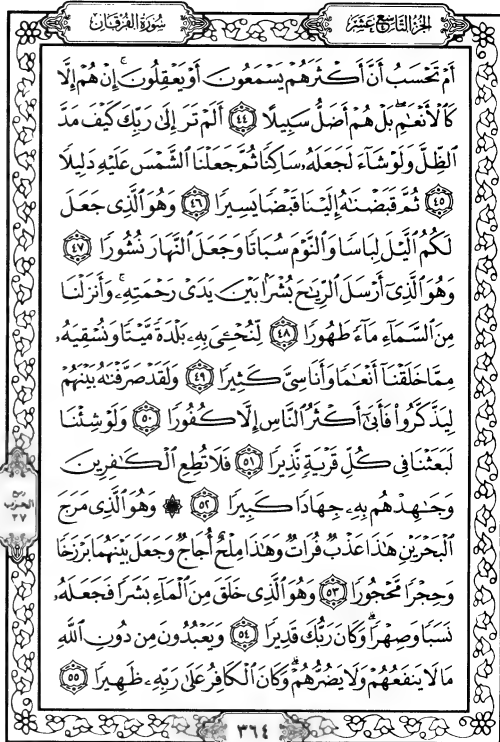 الجزء التاسع عشر
سورة الفرقان
أَمْ تَحْسَبُ أَنَّ أَكْثَرَهُمْ يَسْمَعُونَ أَوْ يَعْقِلُونَ ۚ إِنْ هُمْ إِلَّا
كَالْأَنْعَٰمِ ۖ بَلْ هُمْ أَضَلُّ سَبِيلًا ٤٤ أَلَمْ تَرَ إِلَىٰ رَبِّكَ كَيْفَ مَدَّ
ٱلظِّلَّ وَلَوْ شَآءَ لَجَعَلَهُۥ سَاكِنًا ثُمَّ جَعَلْنَا ٱلشَّمْسَ عَلَيْهِ دَلِيلًا
٤٥ ثُمَّ قَبَضْنَٰهُ إِلَيْنَا قَبْضًا يَسِيرًا ٤٦ وَهُوَ ٱلَّذِى جَعَلَ
لَكُمُ ٱلَّيْلَ لِبَاسًا وَٱلنَّوْمَ سُبَاتًا وَجَعَلَ ٱلنَّهَارَ نُشُورًا ٤٧
وَهُوَ ٱلَّذِىٓ أَرْسَلَ ٱلرِّيَٰحَ بُشْرًۢا بَيْنَ يَدَىْ رَحْمَتِهِۦ ۚ وَأَنزَلْنَا
مِنَ ٱلسَّمَآءِ مَآءً طَهُورًا ٤٨ لِّنُحْۦِىَ بِهِۦ بَلْدَةً مَّيْتًا وَنُسْقِيَهُۥ
مِمَّا خَلَقْنَآ أَنْعَٰمًا وَأَنَاسِىَّ كَثِيرًا ٤٩ وَلَقَدْ صَرَّفْنَٰهُ بَيْنَهُمْ
لِيَذَّكَّرُوا۟ فَأَبَىٰٓ أَكْثَرُ ٱلنَّاسِ إِلَّا كُفُورًا ٥٠ وَلَوْ شِئْنَا
لَبَعَثْنَا فِى كُلِّ قَرْيَةٍ نَّذِيرًا ٥١ فَلَا تُطِعِ ٱلْكَٰفِرِينَ
وَجَٰهِدْهُم بِهِۦ جِهَادًا كَبِيرًا ٥٢ ۞ وَهُوَ ٱلَّذِى مَرَجَ
ٱلْبَحْرَيْنِ هَٰذَا عَذْبٌ فُرَاتٌ وَهَٰذَا مِلْحٌ أُجَاجٌ وَجَعَلَ بَيْنَهُمَا بَرْزَخًا
وَحِجْرًا مَّحْجُورًا ٥٣ وَهُوَ ٱلَّذِى خَلَقَ مِنَ ٱلْمَآءِ بَشَرًا فَجَعَلَهُۥ
نَسَبًا وَصِهْرًا ۗ وَكَانَ رَبُّكَ قَدِيرًا ٥٤ وَيَعْبُدُونَ مِن دُونِ ٱللَّهِ
مَا لَا يَنفَعُهُمْ وَلَا يَضُرُّهُمْ ۗ وَكَانَ ٱلْكَافِرُ عَلَىٰ رَبِّهِۦ ظَهِيرًا ٥٥
ربع
الحزب
٣٧
٣٦٤